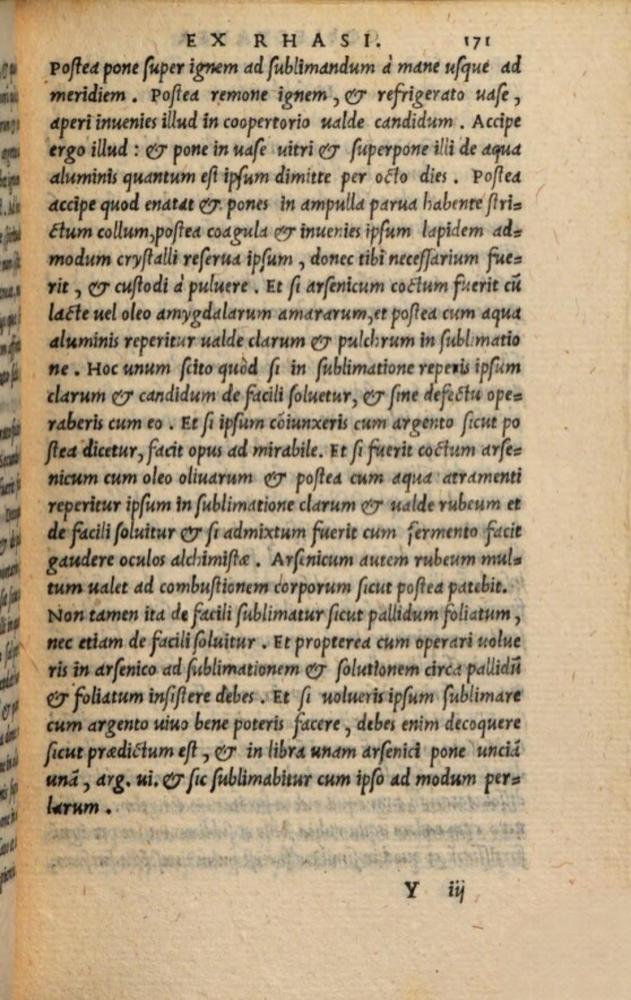 EX RHASI. 171
Postea pone super ignem ad sublimandum à mane usque ad
meridiem. Postea remone ignem, & refrigerato uase,
aperi inuenies illud in coopertorio ualde candidum. Accipe
ergo illud: & pone in uase uitri & superpone illi de aqua
aluminis quantum est ipsum dimitte per octo dies. Postea
accipe quod enatat & pones in ampulla parua habente stri=
ctum collum, postea coagula & inuenies ipsum lapidem ad=
modum crystalli reserua ipsum, donec tibi necessarium fue=
rit, & custodi à puluere. Et si arsenicum coctum fuerit cū
lacte uel oleo amygdalarum amararum, et postea cum aqua
aluminis reperitur ualde clarum & pulchrum in sublimatio
ne. Hoc unum scito quòd si in sublimatione reperis ipsum
clarum & candidum de facili soluetur, & sine defectu ope=
raberis cum eo. Et si ipsum cōiunxeris cum argento sicut po
stea dicetur, facit opus ad mirabile. Et si fuerit coctum arse=
nicum cum oleo oliuarum & postea cum aqua atramenti
reperitur ipsum in sublimatione clarum & ualde rubeum et
de facili soluitur & si admixtum fuerit cum fermento facit
gaudere oculos alchimistæ. Arsenicum autem rubeum mul=
tum ualet ad combustionem corporum sicut postea patebit.
Non tamen ita de facili sublimatur sicut pallidum foliatum,
nec etiam de facili soluitur. Et propterea cum operari uolue
ris in arsenico ad sublimationem & solutionem circa pallidū
& foliatum insistere debes. Et si uolueris ipsum sublimare
cum argento uiuo bene poteris facere, debes enim decoquere
sicut prædictum est, & in libra unam arsenici pone unciā
unā, arg. ui. & sic sublimabitur cum ipso ad modum per=
larum.
Y iij